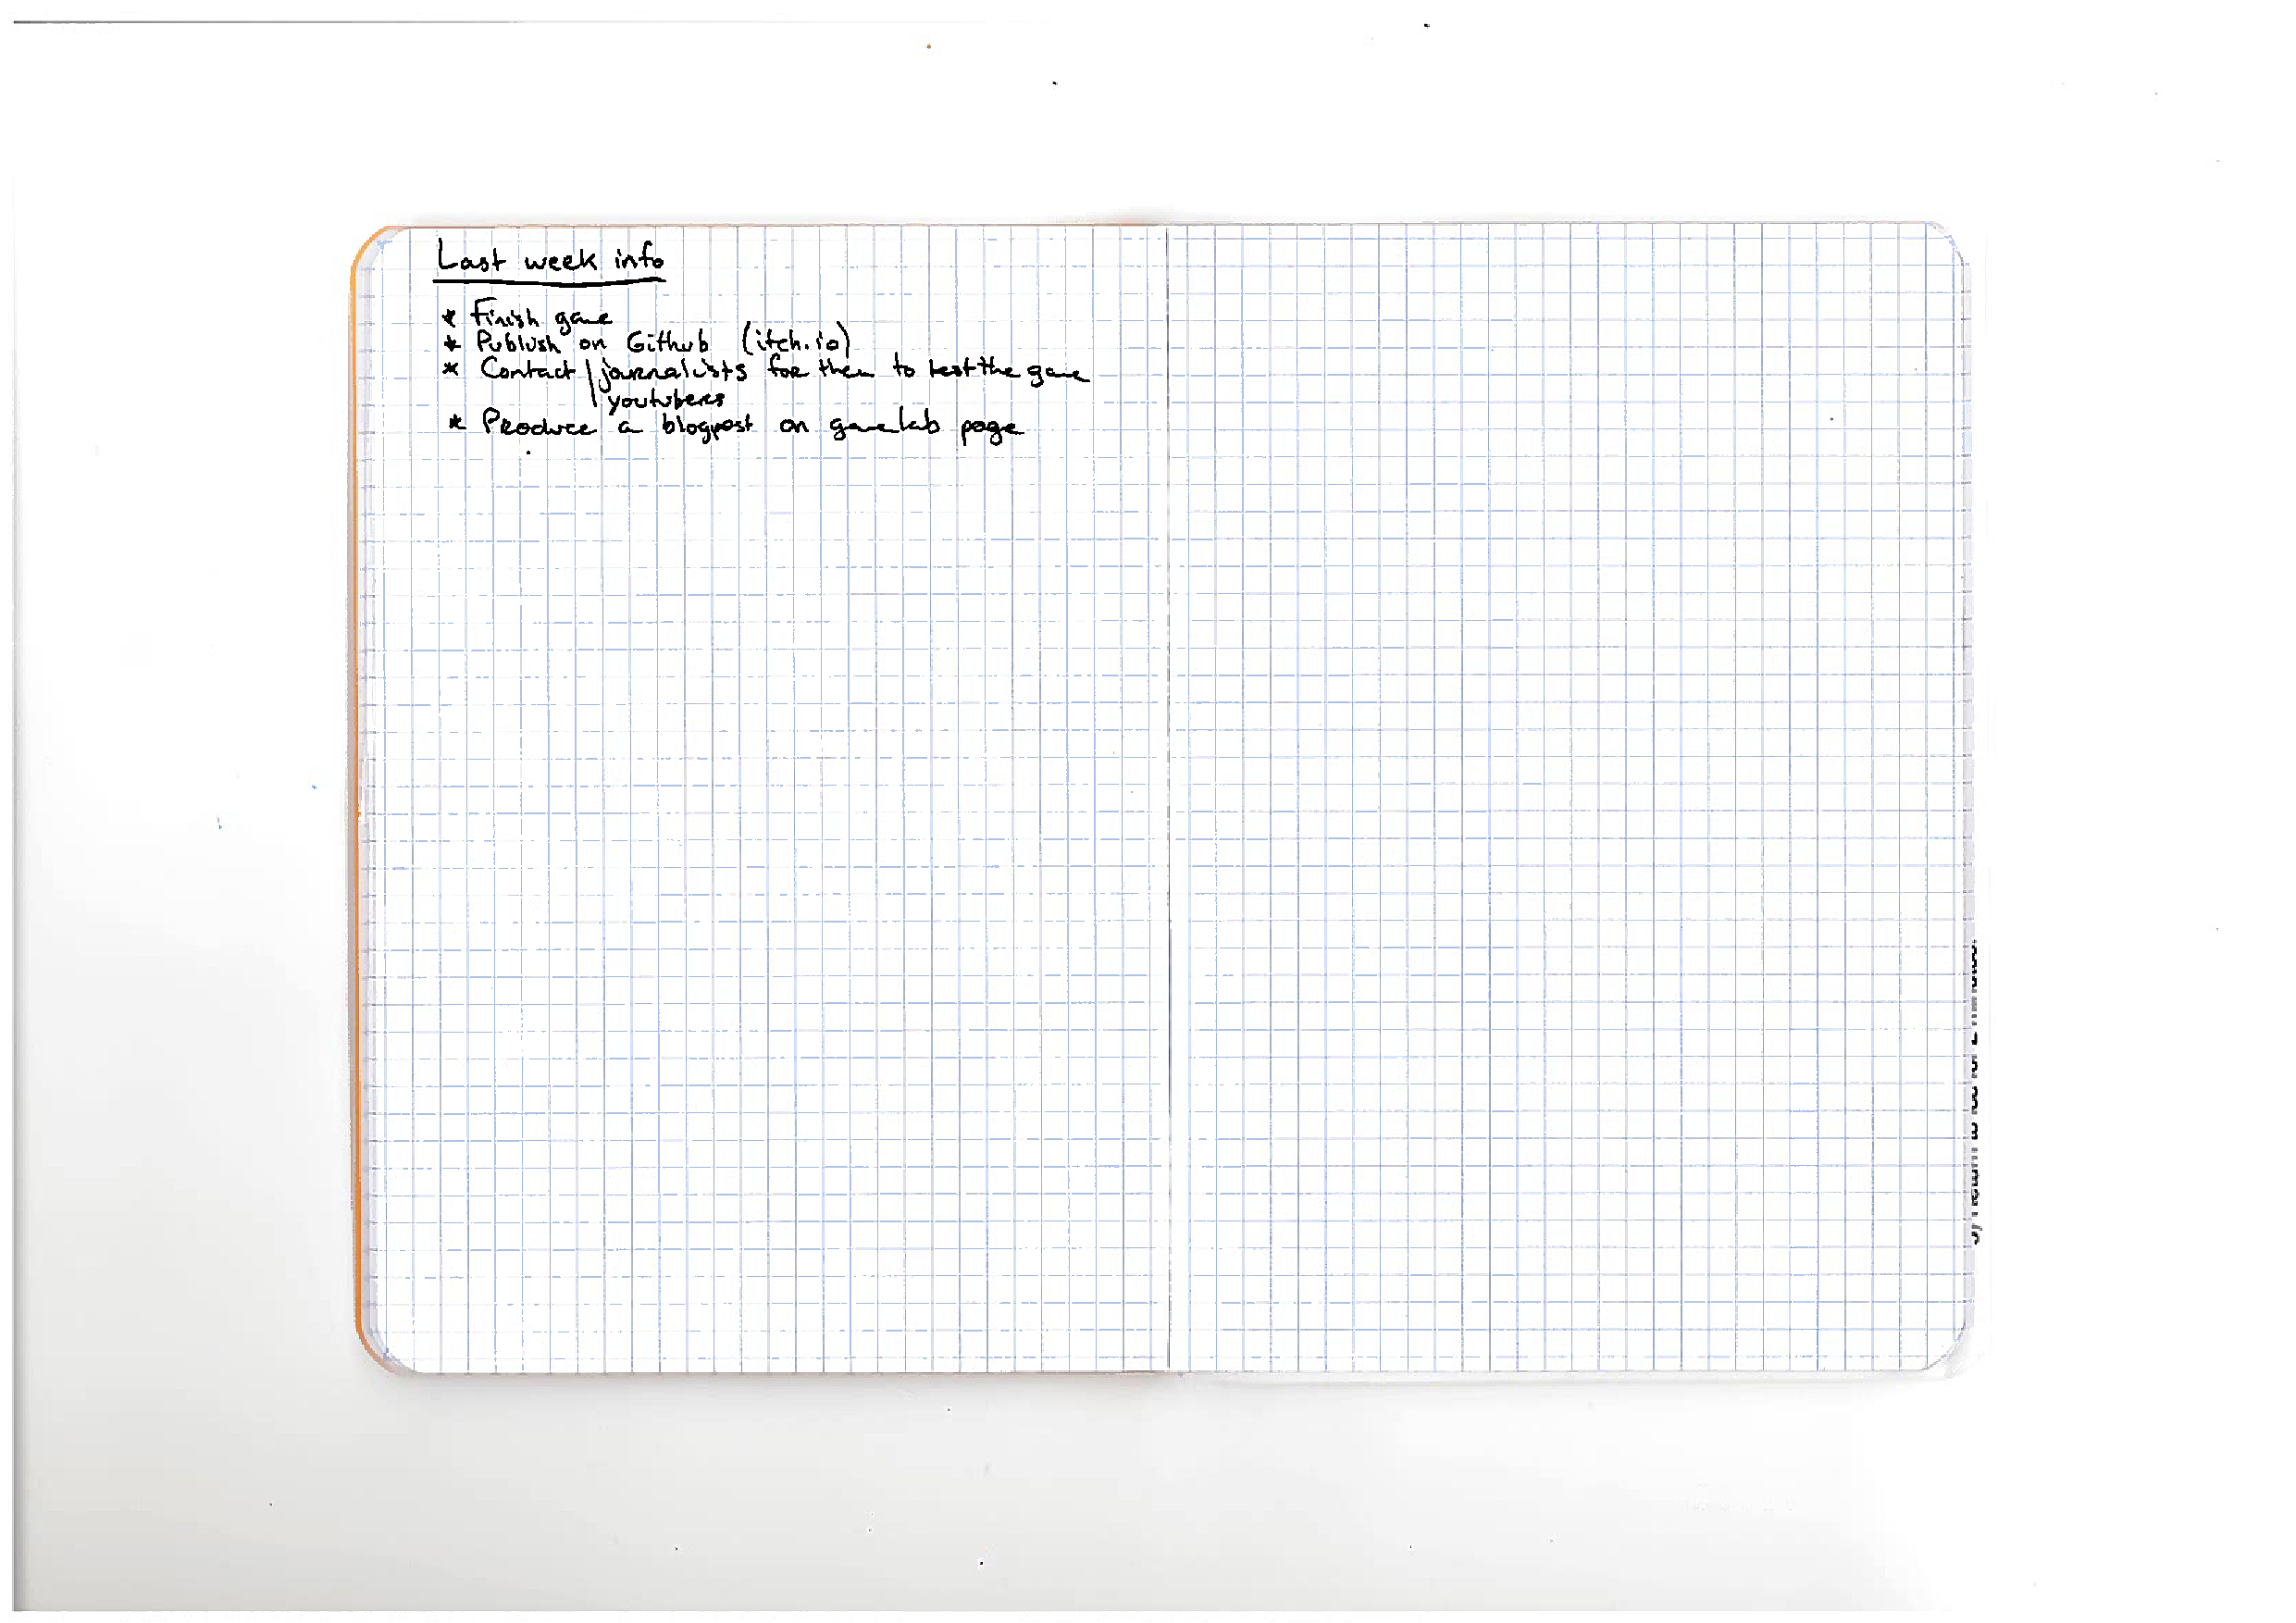 Last week info
* Finish game
* Publish on Github (itch.io)
* Contact | journalists for them to test the game
youtubers
* Produce a blogpost on gamelab page